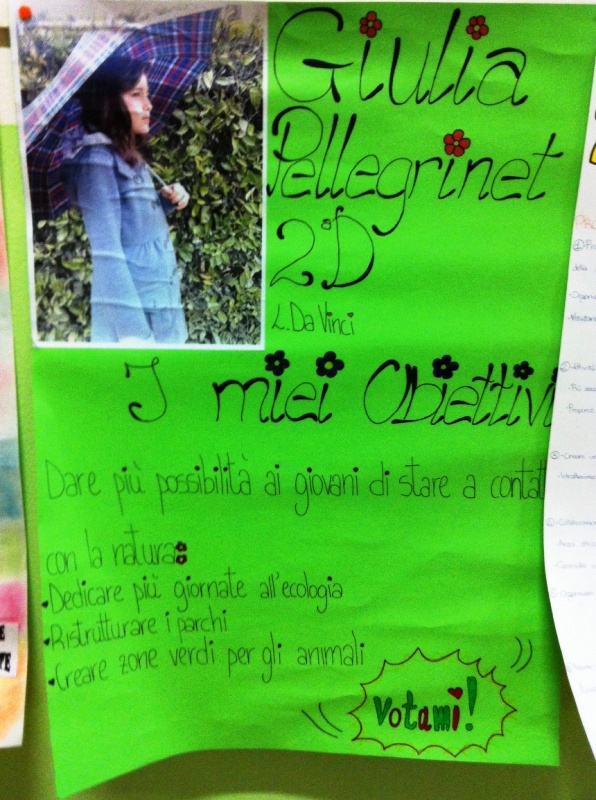 Giulia
Pellegrinet
2°D
L.Da Vinci
I miei Obiettivi
Dare più possibilità ai giovani di stare a contat
con la natura:
•Dedicare più giornate all'ecologia
•Ristrutturare i parchi
•Creare zone verdi per gli animali
Votami!